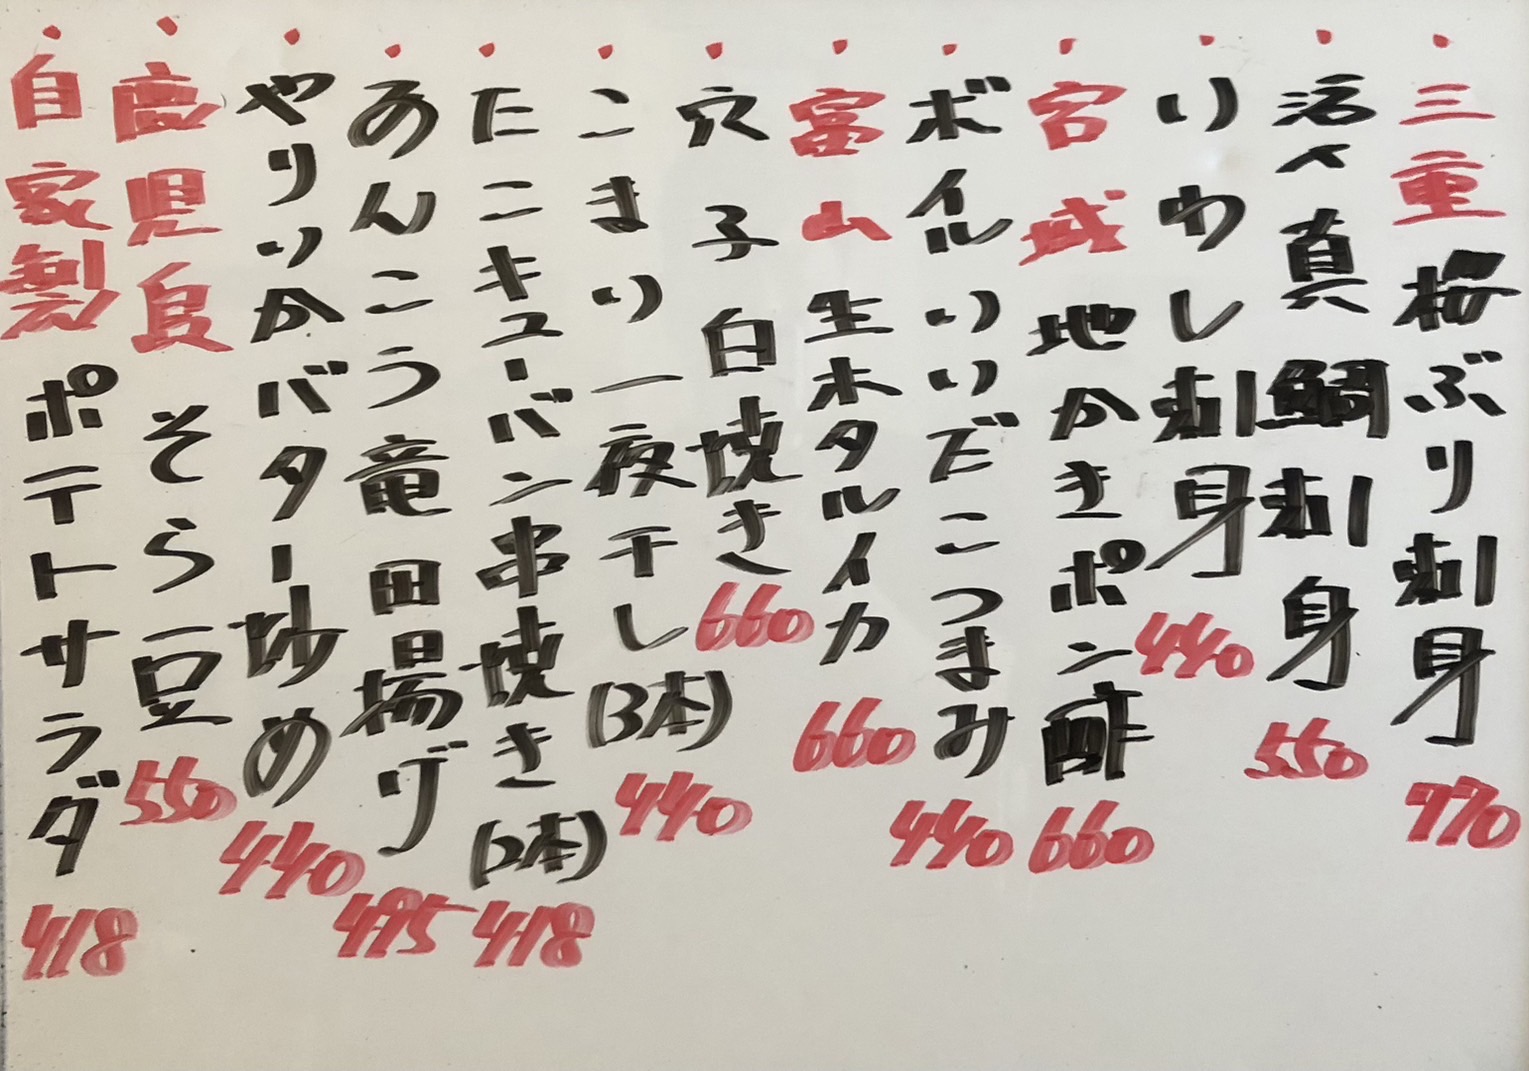 ・三重 桜ぶり刺身 770
・活〆真鯛刺身 550
・いわし刺身 440
・宮城 地かきポン酢 660
・ボイルいいだこつまみ 440
・富山 生ホタルイカ 660
・穴子白焼き 660
・こまい一夜干し(3本) 440
・たこキューバン串焼き(2本) 418
・あんこう竜田揚げ 495
・やりいかバター炒め 440
・鹿児島 そら豆 550
・自家製ポテトサラダ 418